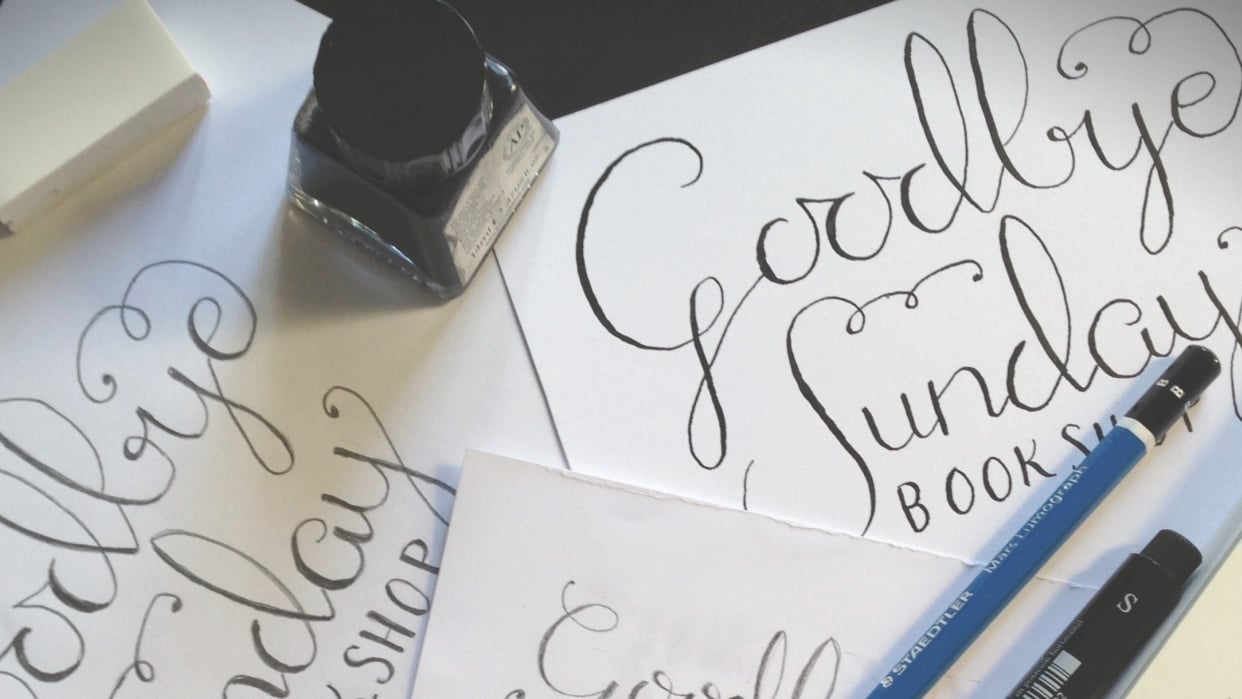 Goodbye
Sunday
BOOK SHOP
odbye
nday
SHOP
Good
STAEDTLER Mars Lumograph
B B
S